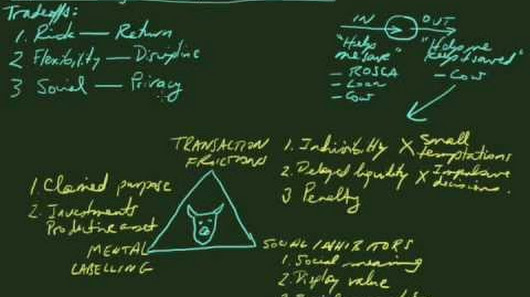 Tradeoffs:
1. Risk — Return
2 Flexibility — Discipline
3 Social — Privacy
IN OUT
"Helps me save"
- ROSCA
- Loan
- Cow
"Help me keep it saved"
- Cow
TRANSACTION FRICTIONS
1. Indivisibility X small temptations
2. Delayed liquidity X Impulsive decisions.
3 Penalty
1. Claimed purpose
2. Investments
Productive asset
MENTAL LABELLING
SOCIAL INHIBITORS
1. Social meaning
2. Display value